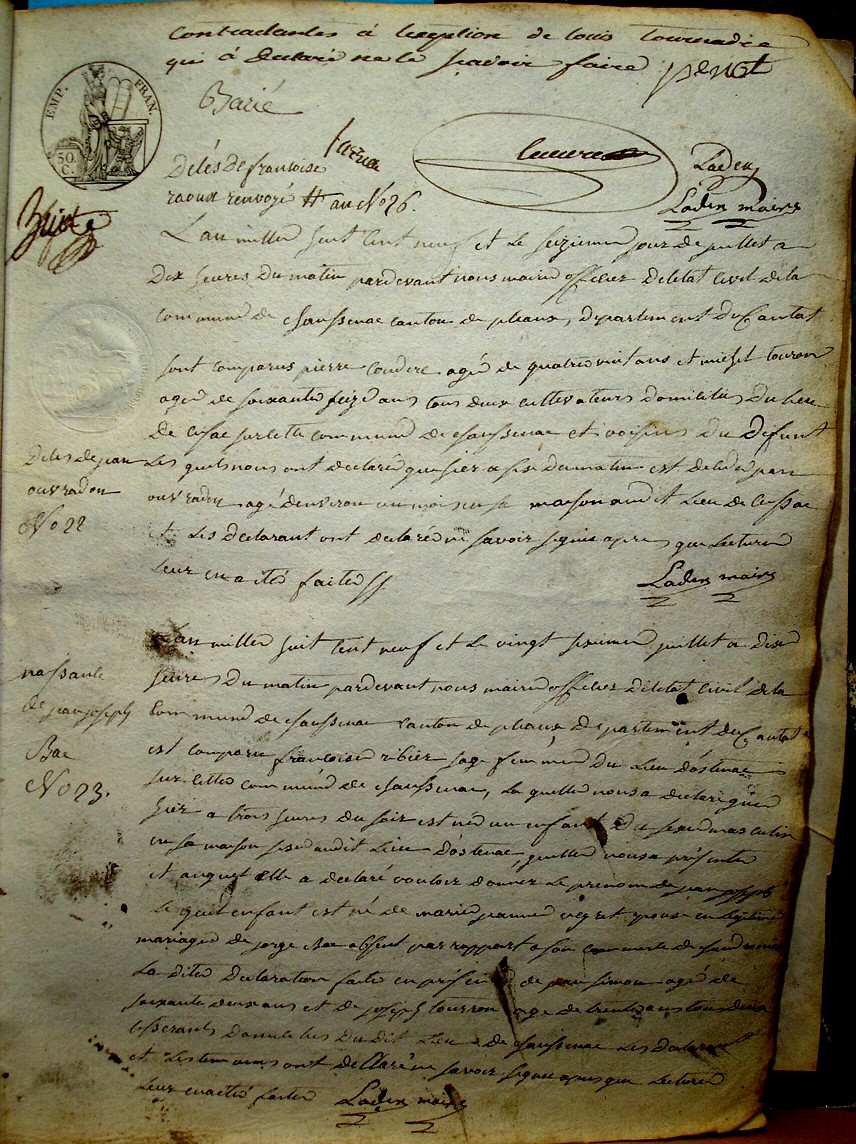 contractantes à lexeption de louis tournadre
qui à declaré ne le scavoir faire
Barié
EMP. FRAN.
50. C.
Délés de francoise
raoux renvoyé au No 26.
Laden
Laden maire
L'an mille huit cent neuf et le seizieme jour de juillet a
dix heures du matin pardevant nous maire officier deletat civil de la
commune de chaussenac canton de pleaux, département du Cantal
sont comparus pierre Couderc agé de quatre vint ans et michel touron
agé de soixante seize ans tous deux cultivateurs domiciliés du lieu
de cussac sur cette commune de chaussenac et voisins du défunt
Délés de jean
ouvradou
No 22
Les quels nous ont declaré que hier a six du matin est décédé jean
ouvradou agé denviron un mois en sa maison audit Lieu de Cussac
et Les declarant ont declaré ne savoir signer apres que Lecture
Leur en a été faite
Laden maire
Lan mille huit cent neuf et Le vingt juillet a dix
heures Du matin pardevant nous maire officier deletat Civil de la
Commune de chaussenac canton de pleaux Département du Cantal
nassance
de jean joseph
Bac
No 23.
est comparu francoise ribier sage femme du Lieu dostenac
sur cette commune de chaussenac, La quelle nous a declaré que
hier a trois heures du soir est né un enfant Du sexe masculin
en sa maison sise audit Lieu Dostenac quelle nous a présenté
et auquel elle a déclaré vouloir donner Le prenom de jean joseph
Le quel enfant est né de marie jeanne veyret epouse en Legitime
mariage de jorge Bac absent par rapport a son commerce de
La dite Declaration faite en présence de jean simon agé de
soixante deux ans et de joseph tourron age de trente ans tous deux
tisserants Domicilies Du dit Lieu de chaussenac Les declarant
et Les temoins ont déClaré ne savoir signer apres que Lecture
Leur en a été faite Laden maire